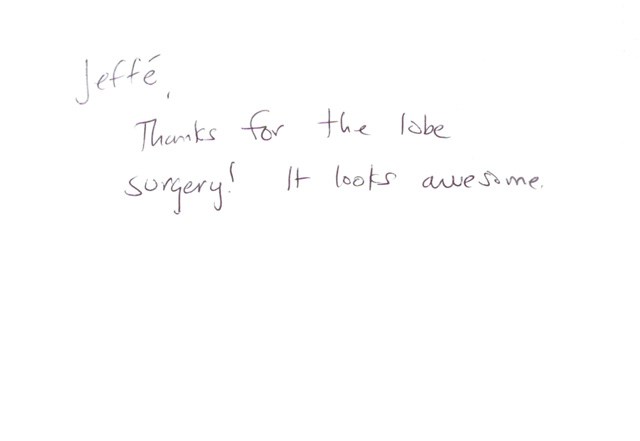 Jeffé,
Thanks for the lobe
surgery! It looks awesome.